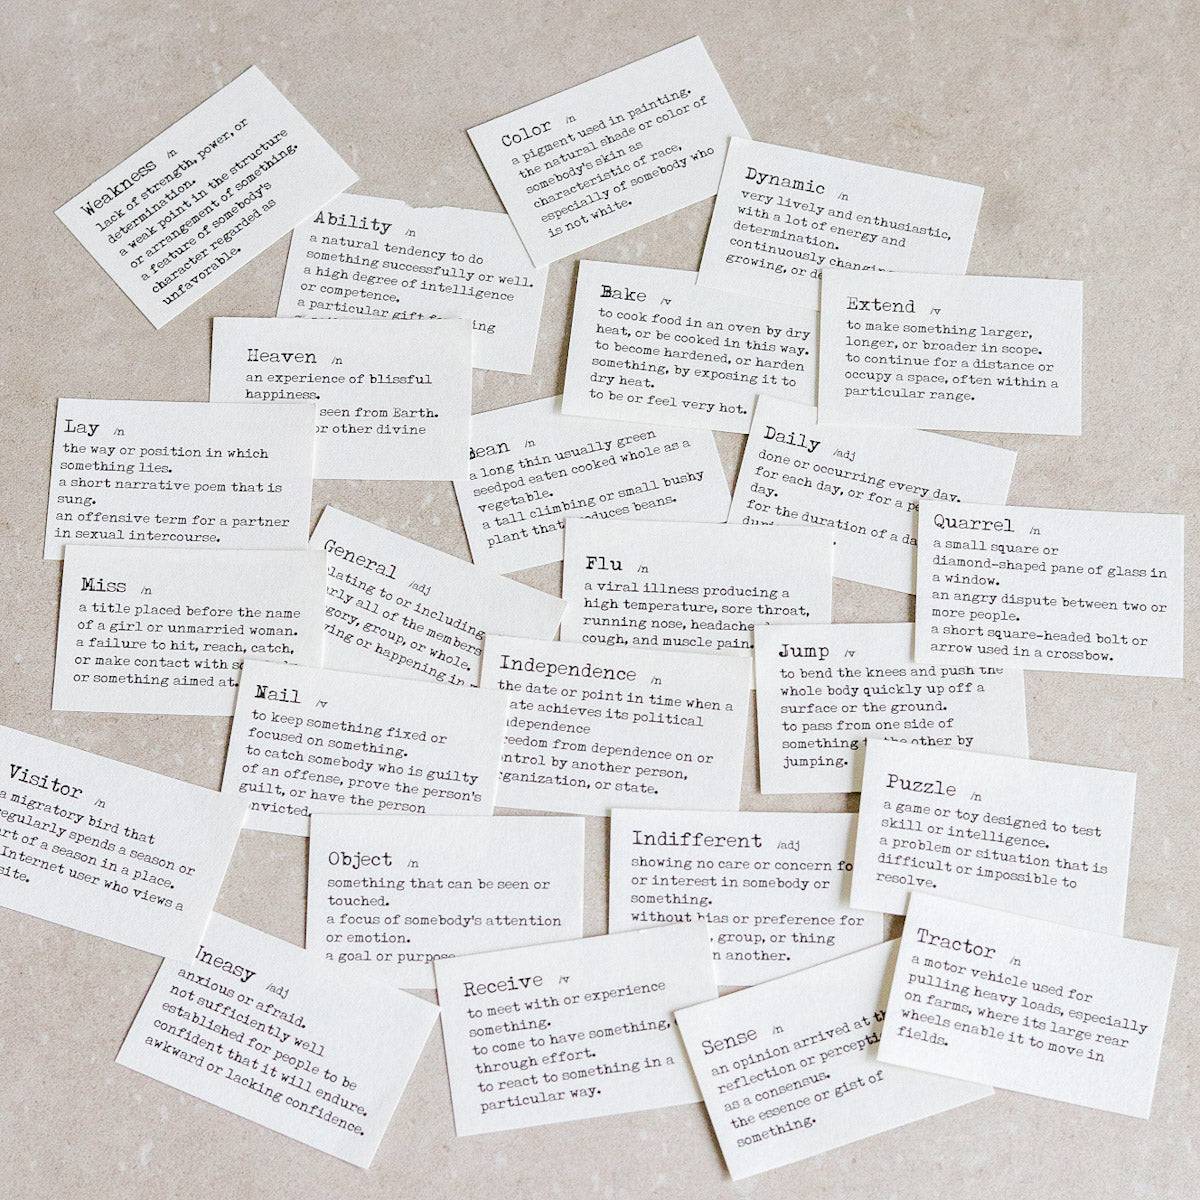 Weakness /n
lack of strength, power, or
determination.
a weak point in the structure
or arrangement of something.
a feature of somebody's
character regarded as
unfavorable.
Color /n
a pigment used in painting.
the natural shade or color of
somebody's skin as
characteristic of race,
especially of somebody who
is not white.
Ability /n
a natural tendency to do
something successfully or well.
a high degree of intelligence
or competence.
a particular gift
Dynamic /n
very lively and enthusiastic,
with a lot of energy and
determination.
continuously changing
growing, or
Bake /v
to cook food in an oven by dry
heat, or be cooked in this way.
to become hardened, or harden
something, by exposing it to
dry heat.
to be or feel very hot.
Extend /v
to make something larger,
longer, or broader in scope.
to continue for a distance or
occupy a space, often within a
particular range.
Heaven /n
an experience of blissful
happiness.
seen from Earth.
or other divine
Lay /n
the way or position in which
something lies.
a short narrative poem that is
sung.
an offensive term for a partner
in sexual intercourse.
Bean /n
a long thin usually green
seedpod eaten cooked whole as a
vegetable.
a tall climbing or small bushy
plant that produces beans.
Daily /adj
done or occurring every day.
for each day, or for a
day.
for the duration of a
Quarrel /n
a small square or
diamond-shaped pane of glass in
a window.
an angry dispute between two or
more people.
a short square-headed bolt or
arrow used in a crossbow.
Miss /n
a title placed before the name
of a girl or unmarried woman.
a failure to hit, reach, catch,
or make contact with
or something aimed at.
General /adj
relating to or including
nearly all of the members
category, group, or whole.
or happening in
Flu /n
a viral illness producing a
high temperature, sore throat,
running nose, headache,
cough, and muscle pain.
Independence /n
the date or point in time when a
state achieves its political
independence
freedom from dependence on or
control by another person,
organization, or state.
Jump /v
to bend the knees and push the
whole body quickly up off a
surface or the ground.
to pass from one side of
something to the other by
jumping.
Nail /v
to keep something fixed or
focused on something.
to catch somebody who is guilty
of an offense, prove the person's
guilt, or have the person
convicted.
Visitor /n
a migratory bird that
regularly spends a season or
part of a season in a place.
Internet user who views a
site.
Object /n
something that can be seen or
touched.
a focus of somebody's attention
or emotion.
a goal or purpose
Indifferent /adj
showing no care or concern for
or interest in somebody or
something.
without bias or preference for
, group, or thing
another.
Puzzle /n
a game or toy designed to test
skill or intelligence.
a problem or situation that is
difficult or impossible to
resolve.
Uneasy /adj
anxious or afraid.
not sufficiently well
established for people to be
confident that it will endure.
awkward or lacking confidence.
Receive /v
to meet with or experience
something.
to come to have something,
through effort.
to react to something in a
particular way.
Sense /n
an opinion arrived at
reflection or perception
as a consensus.
the essence or gist of
something.
Tractor /n
a motor vehicle used for
pulling heavy loads, especially
on farms, where its large rear
wheels enable it to move in
fields.